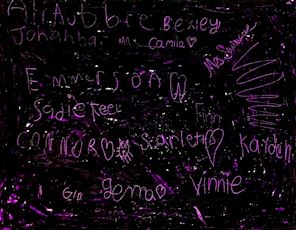 Ali Aubbre Bexley
Johanna Camila
Emmerson
Sadie Finn
Connor Scarlett Kayden
Gio gemma Vinnie